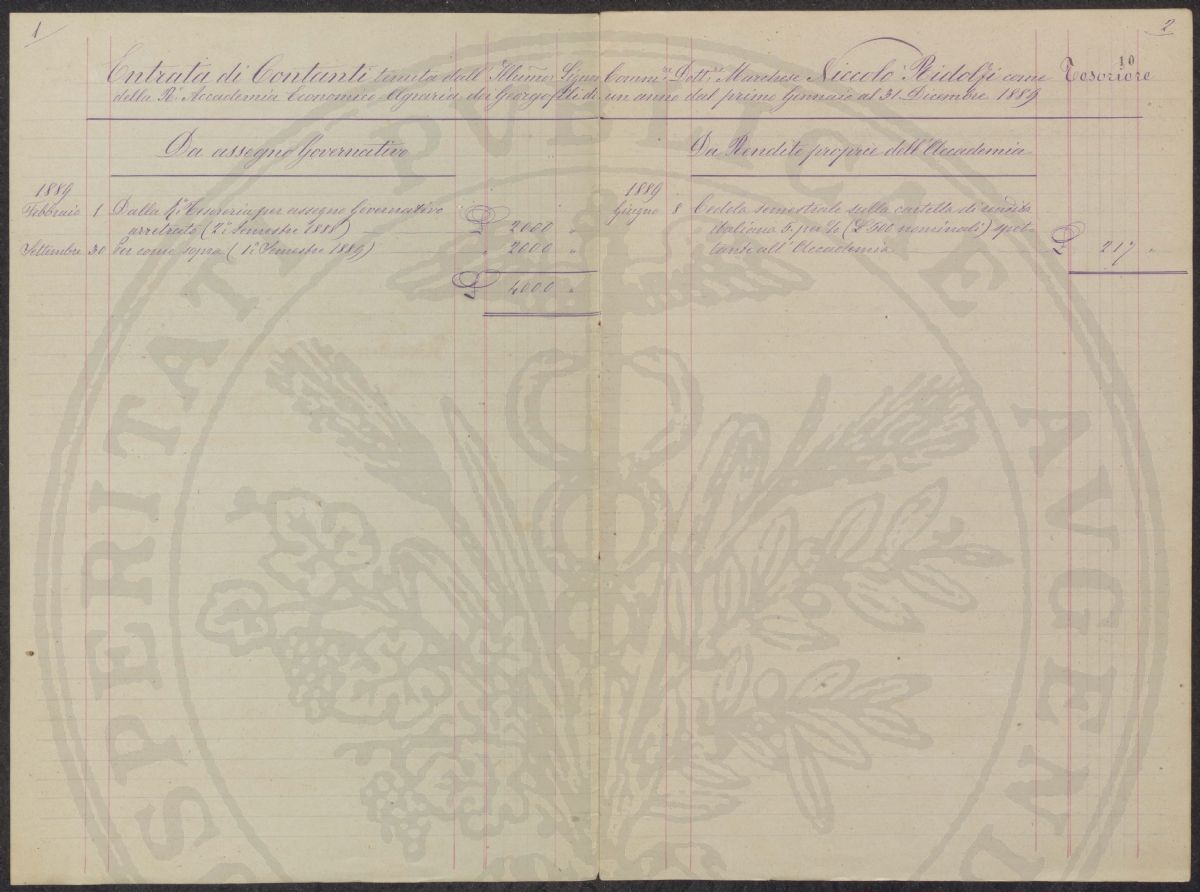 1
2
10
Entrata di Contanti tenuta dall' Illmo Signor Comm.re Dott.re Marchese Niccolò Ridolfi come Tesoriere
della R. Accademia Economico-Agraria dei Georgofili di un anno dal primo Gennaio al 31 Dicembre 1889
Da assegno Governativo
1889
Febbraio 1 Dalla R. Tesoreria per assegno Governativo
arretrato (2° Semestre 1888) £ 2000 "
Settembre 30 Per come sopra (1° Semestre 1889) " 2000 "
£ 4000 "
Da Rendite proprie dell'Accademia
1889
Giugno 8 Cedola semestrale sulla cartella di rendita
italiana 5. per % (£ 500 nominali) spet-
tante all'Accademia £ 217 "
PROSPERITATI PUBLICAE AUGENDAE